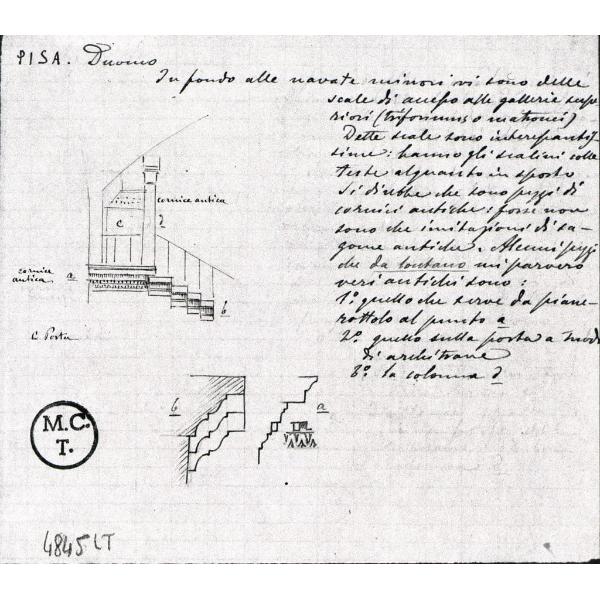 PISA. Duomo
In fondo alle navate minori vi sono delle
scale di accesso alle gallerie supe
riori (triforiums o matronei)
Dette scale sono interessantis
sime: hanno gli scalini colle
teste alquanto in sporto
Si direbbe che sono pezzi di
cornici antiche: forse non
sono che imitazioni di sa-
gome antiche. Alcuni pezzi
che da lontano mi parvero
veri antichi sono:
1º quello che serve da piane-
rottolo al punto a
2º quello sulla porta a modo
di architrave
3º la colonna d
cornice antica
c
d
cornice
antica
a
b
C. Porta
b
a
M.C.
T.
4845 LT